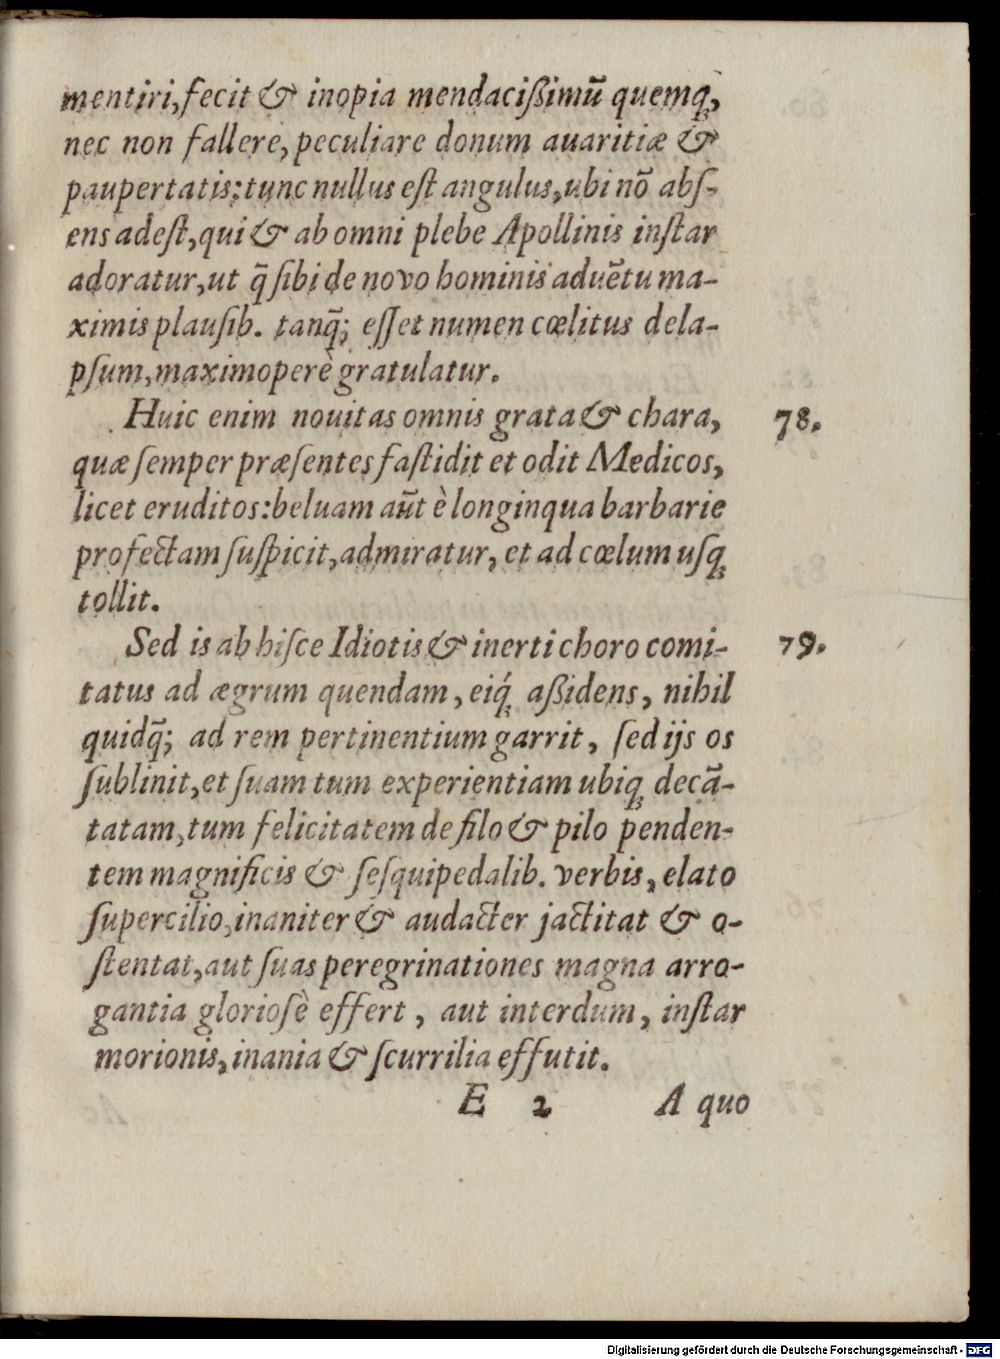 mentiri,fecit & inopia mendacißimū quemq́,
nec non fallere,peculiare donum auaritiæ &
paupertatis:tunc nullus eſt angulus,ubi nō abſ-
ens adeſt,qui & ab omni plebe Apollinis inſtar
adoratur,ut q̃ ſibi de novo hominis aduētu ma-
ximis plauſib. tanq̃; eſſet numen cœlitus dela-
pſum,maximoperè gratulatur.
Huic enim nouitas omnis grata & chara, 78.
quæ ſemper præſentes faſtidit et odit Medicos,
licet eruditos:beluam aūt è longinqua barbarie
profectam ſuſpicit,admiratur, et ad cœlum uſq́
tollit.
Sed is ab hiſce Idiotis & inerti choro comi- 79.
tatus ad ægrum quendam, eiq́ aßidens, nihil
quidq̃; ad rem pertinentium garrit, ſed ijs os
ſublinit,et ſuam tum experientiam ubiq́ decā-
tatam,tum felicitatem de filo & pilo penden-
tem magnificis & ſeſquipedalib. verbis, elato
ſupercilio,inaniter & audacter jactitat & o-
ſtentat,aut ſuas peregrinationes magna arro-
gantia glorioſè effert, aut interdum, inſtar
morionis,inania & ſcurrilia effutit.
E 2 A quo
Digitalisierung gefördert durch die Deutsche Forschungsgemeinschaft - DFG